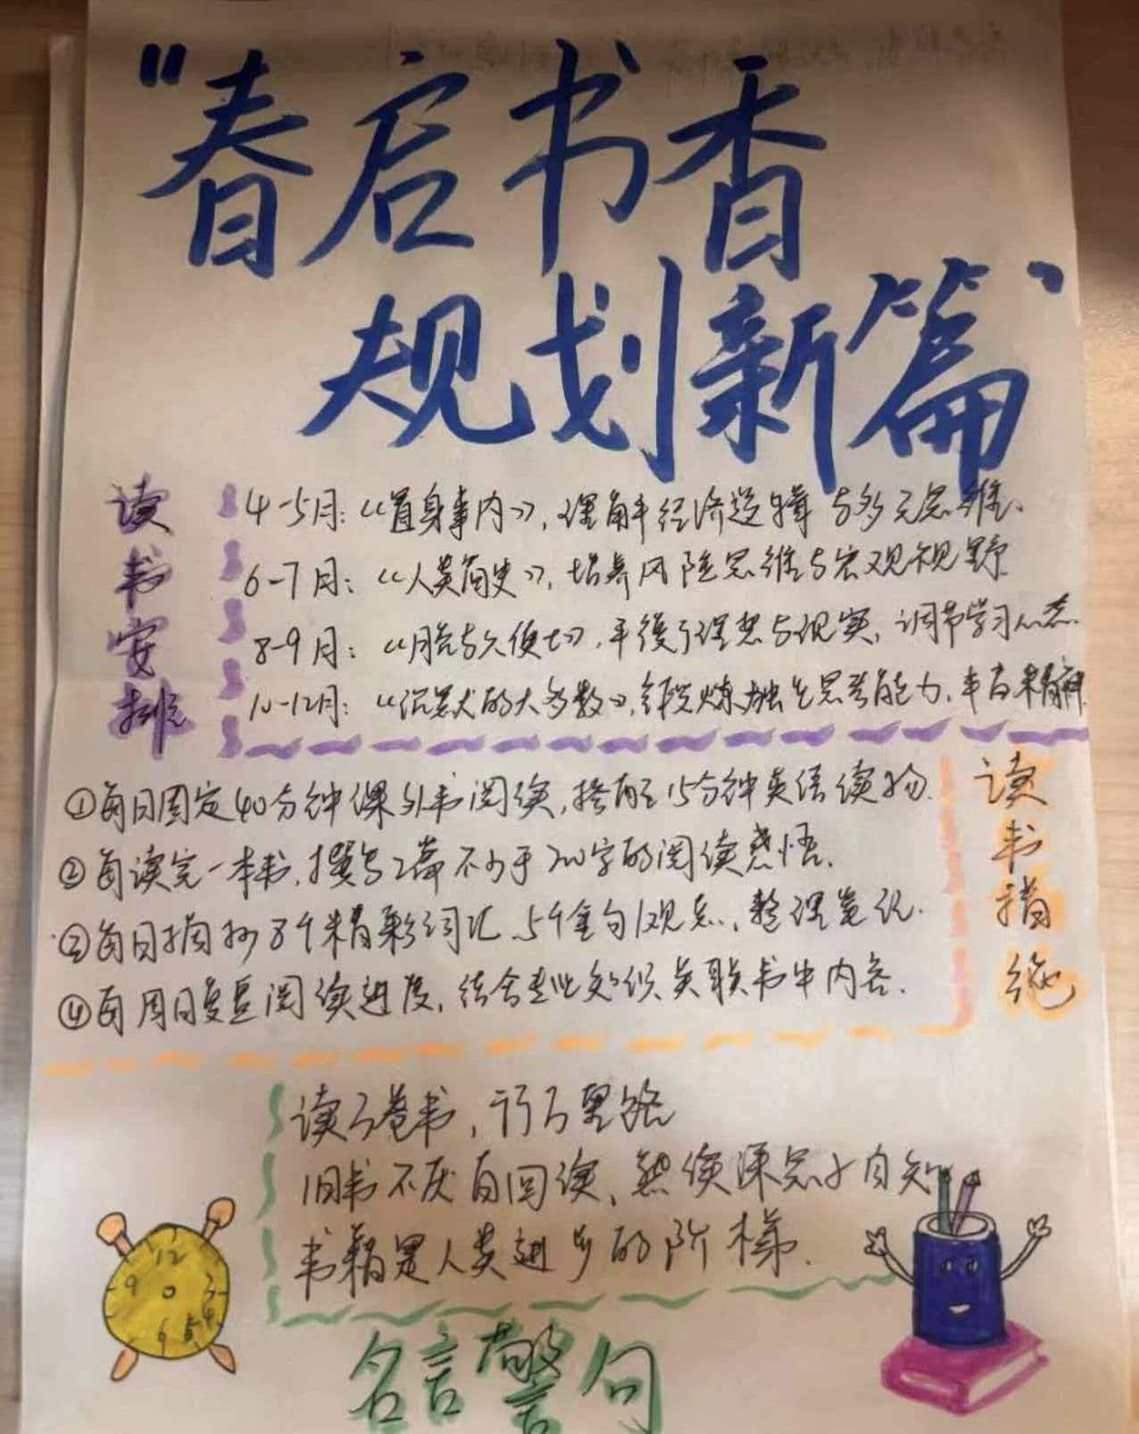 "春启书香
规划新篇"
读书安排
4-5月：《置身事内》，理解经济逻辑与多元思维、
6-7月：《人类简史》，培养风险思维与宏观视野
8-9月：《月亮与六便士》，平衡了理想与现实、调节学习心态.
10-12月：《沉默的大多数》，锻炼独立思考能力、丰富精神
读书措施
①每日固定40分钟课外书阅读，搭配15分钟英语读物.
②每读完一本书，撰写2篇不少于200字的阅读感悟.
③每日摘抄8个精彩词汇、5个金句/观点，整理笔记.
④每周日复盘阅读进度，结合专业知识关联书中内容.
读万卷书，行万里路
旧书不厌百回读、熟读深思子自知
书籍是人类进步的阶梯.
名言警句
12
9
3
4
6
5